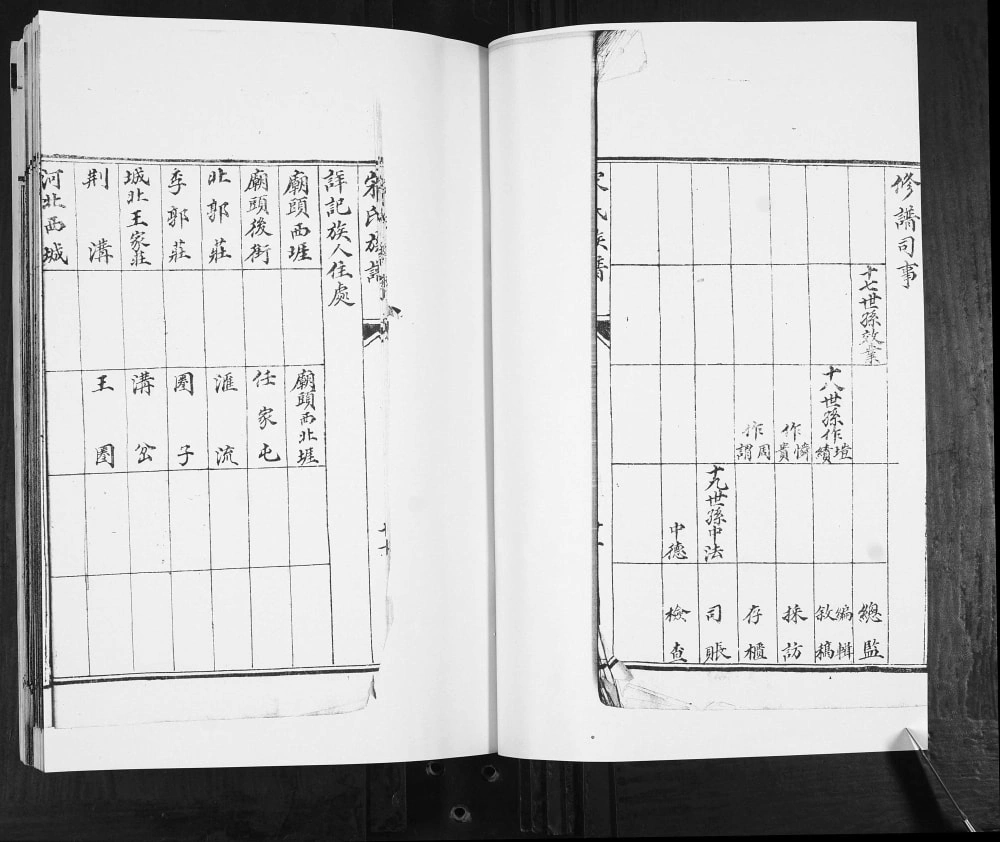 修譜司事
十七世孫效業
總監
十八世孫作塏
作績
編輯
敘稿
作憐
作貴
採訪
作周
作謂
存櫃
十九世孫中法
司賬
中德
檢查
宋氏族譜
宋氏族譜
詳記族人住處
廟頭西堐
廟頭西北堐
廟頭後街
任家屯
北郭莊
滙流
季郭莊
圈子
城北王家莊
溝岔
荆溝
王圈
河北西城